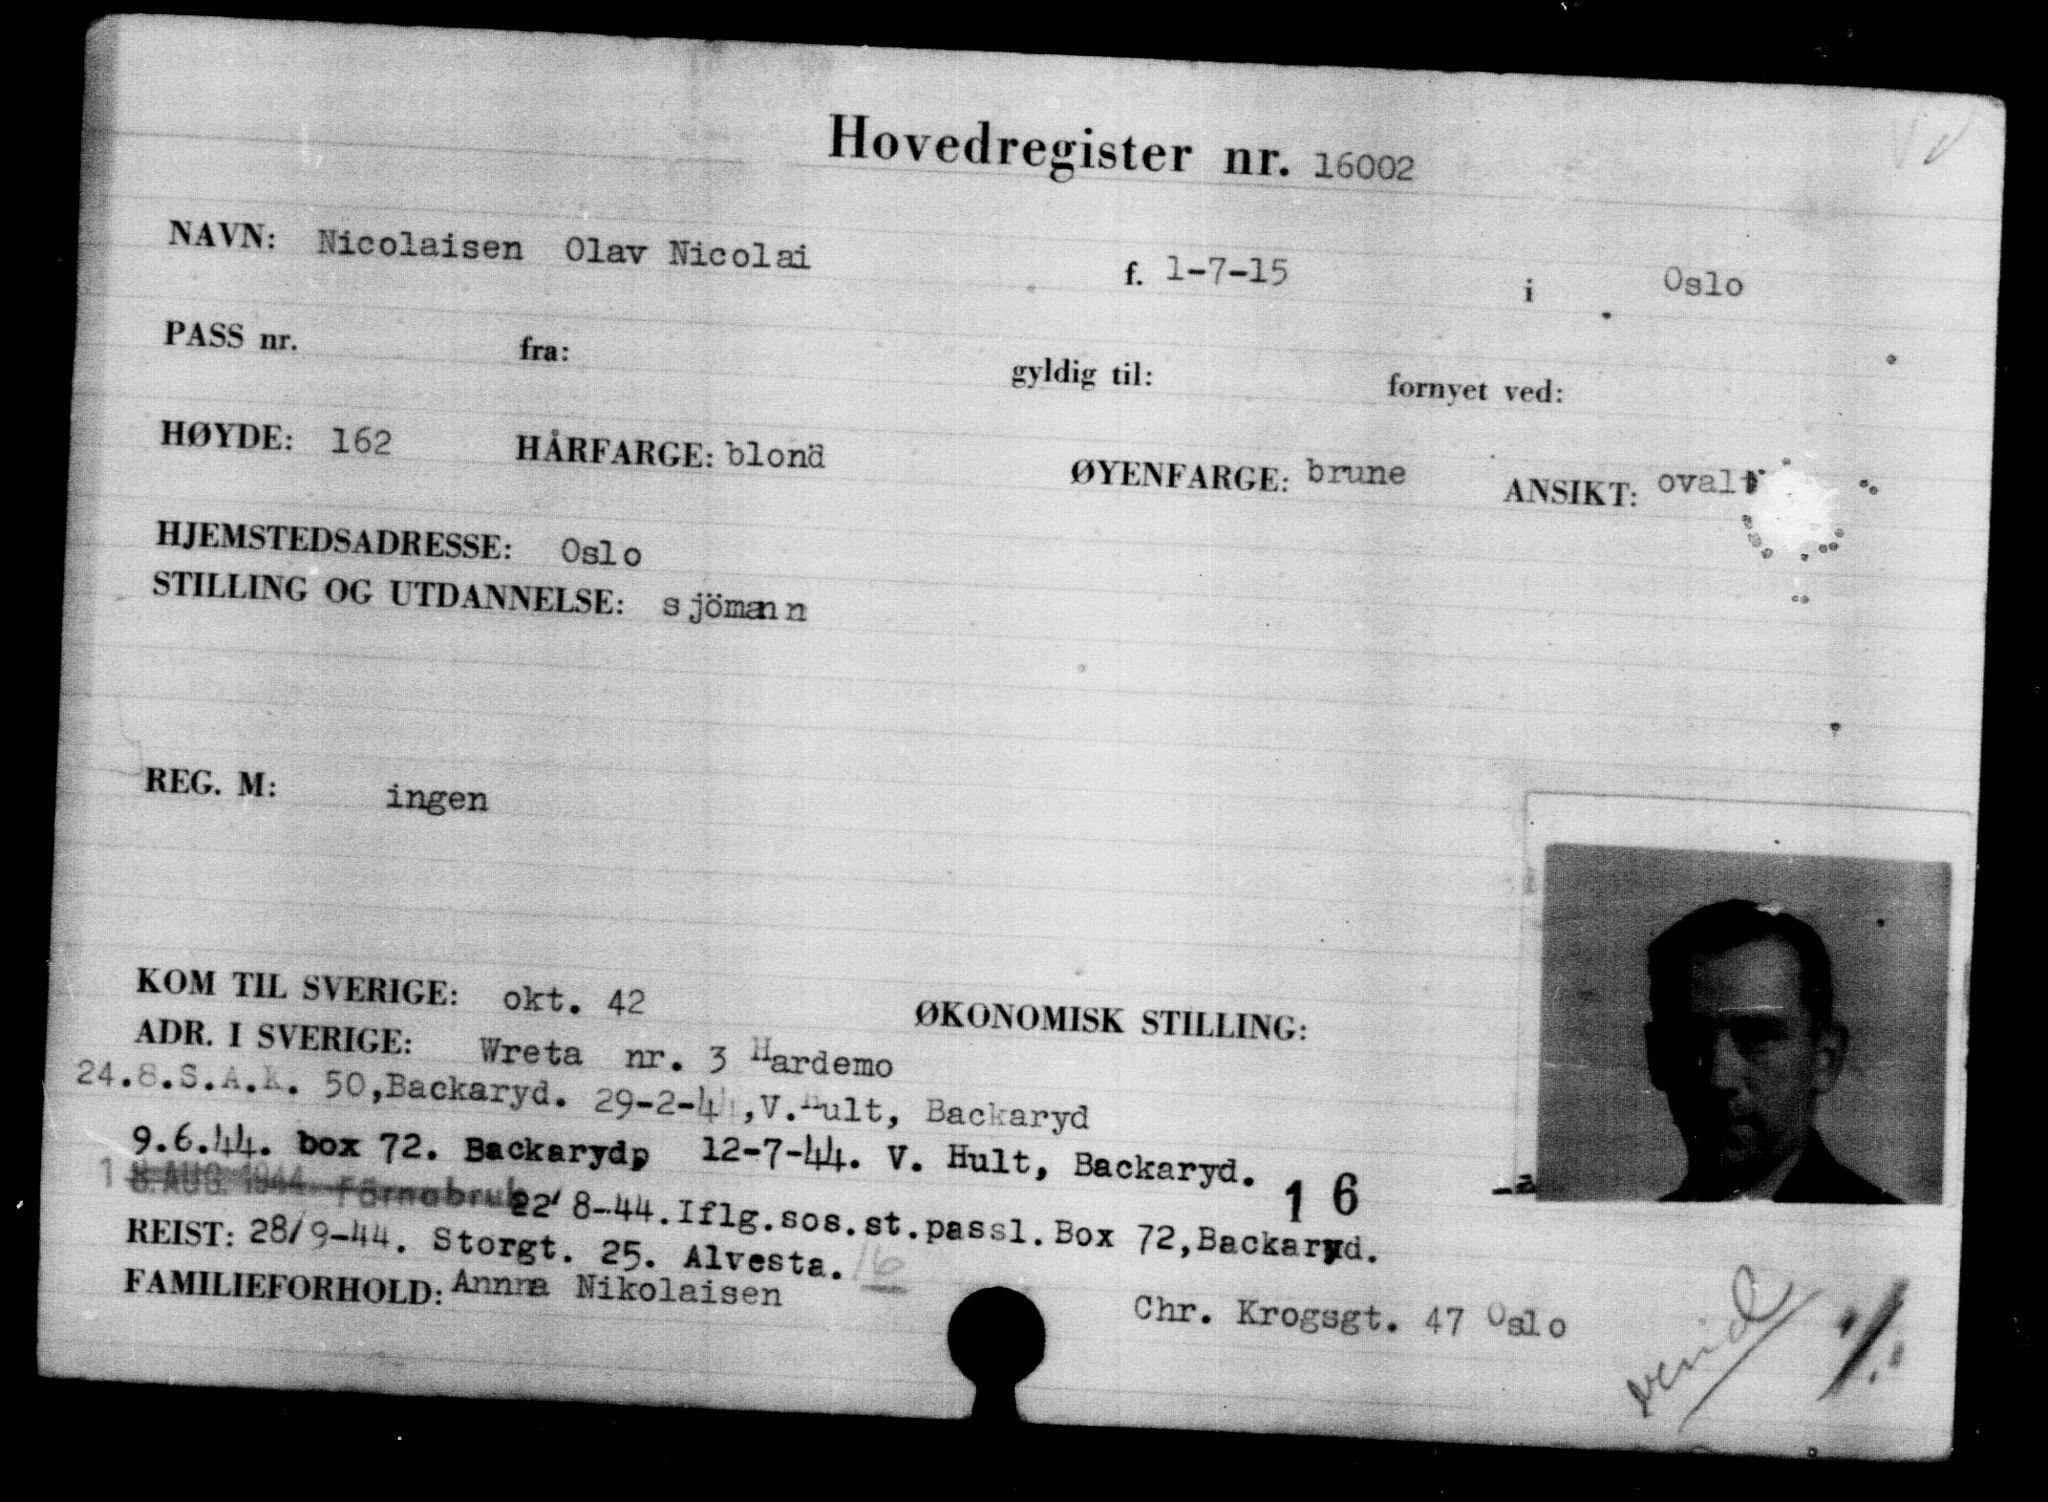 Hovedregister nr. 16002
NAVN: Nicolaisen Olav Nicolai f. 1-7-15 i Oslo
PASS nr. fra: gyldig til: fornyet ved:
HØYDE: 162 HÅRFARGE: blond ØYENFARGE: brune ANSIKT: ovalt
HJEMSTEDSADRESSE: Oslo
STILLING OG UTDANNELSE: sjömann
REG. M: ingen
KOM TIL SVERIGE: okt. 42 ØKONOMISK STILLING:
ADR. I SVERIGE: Wreta nr. 3 Hardemo
24.8.S.A.K. 50,Backaryd. 29-2-44,V.Hult, Backaryd
9.6.44. box 72. Backaryd, 12-7-44. V. Hult, Backaryd. 16
18. AUG. 1944. Törnabruk 22/8-44.Iflg.sos.st.passl.Box 72,Backaryd.
REIST: 28/9-44. Storgt. 25. Alvesta. 16
FAMILIEFORHOLD: Anna Nikolaisen Chr. Krogsgt. 47 Oslo
vend